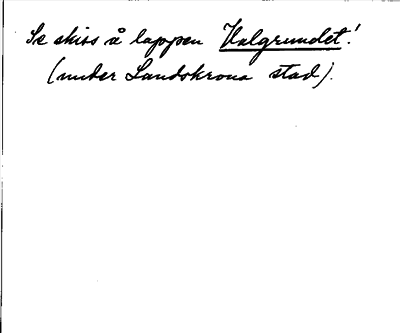 Se skiss å lappen Valgrundet!
(under Landskrona stad).